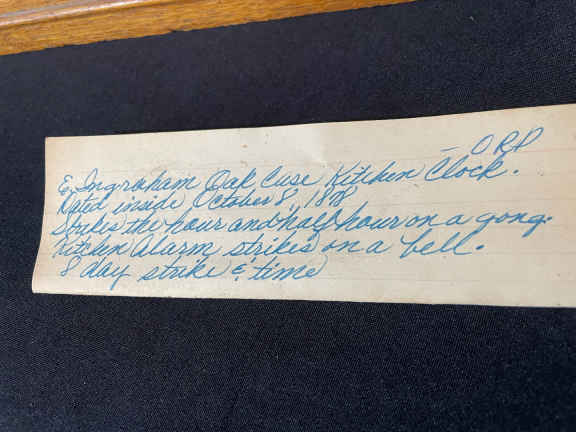 — ORP
E. Ingraham Oak Case Kitchen Clock.
Dated inside October 8, 1878
Strikes the hour and half hour on a gong.
Kitchen Alarm strikes on a bell.
8 day strike & time